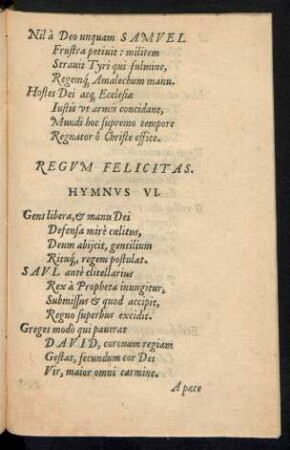 Nil à Deo unquam SAMVEL
Frustra petivit: militem
Stravit Tyri qui fulmine,
Regemq́, Amalechum manu.
Hostes Dei atq, Ecclesiæ
Iustis vt armis concidant,
Mundi hoc supremo tempore
Regnator ô Christe effice.
REGVM FELICITAS.
HYMNVS VI.
Gens libera, & manu Dei
Defensa mirè cœlitus,
Deum abijcit, gentilium
Rituq́, regem postulat.
SAVL antè clitellarius
Rex à Propheta inungitur,
Submissus & quod accipit,
Regno superbus excidit.
Greges modò qui paverat
DAVID, coronam regiam
Gestat, secundum cor Dei
Vir, maior omni carmine.
A pace